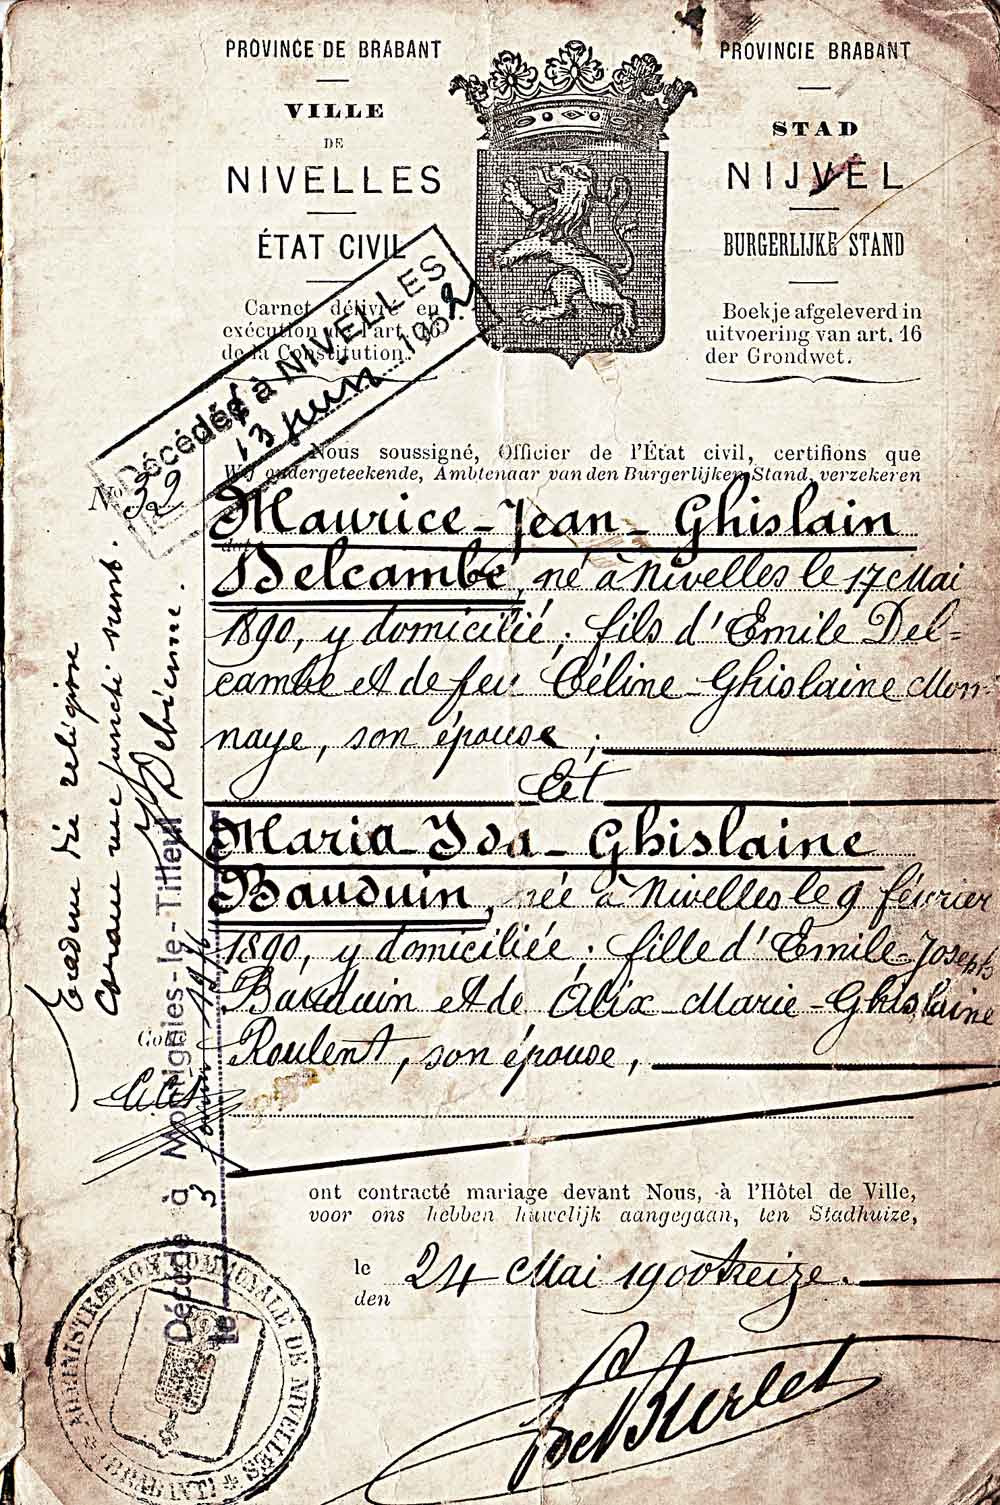 PROVINCE DE BRABANT
VILLE
DE
NIVELLES
ÉTAT CIVIL
Carnet délivré en
exécution de l'art. 16
de la Constitution.
PROVINCIE BRABANT
STAD
NIJVEL
BURGERLIJKE STAND
Boekje afgeleverd in
uitvoering van art. 16
der Grondwet.
Décédée à NIVELLES
13 juin 1952
No 32
Nous soussigné, Officier de l'État civil, certifions que
Wij ondergeteekende, Ambtenaar van den Burgerlijken Stand, verzekeren
dat
Maurice-Jean-Ghislain
Delcambe, né à Nivelles le 17 Mai
1890, y domicilié, fils d'Emile Del=
cambe et de feu Céline-Ghislaine Mon-
naye, son épouse;
Et
Maria-Ida-Ghislaine
Bauduin, née à Nivelles le 9 février
1890, y domiciliée, fille d'Emile-Joseph
Bauduin et de Alix-Marie-Ghislaine
Roulent, son épouse,
ont contracté mariage devant Nous, à l'Hôtel de Ville,
voor ons hebben huwelijk aangegaan, ten Stadhuize,
le 24 Mai 1900treize.
den
de Burlet
religione
coram me juncti sunt.
Décédé à Montignies-le-Tilleul
le 3
ADMINISTRATION COMMUNALE DE NIVELLES
(BRABANT)